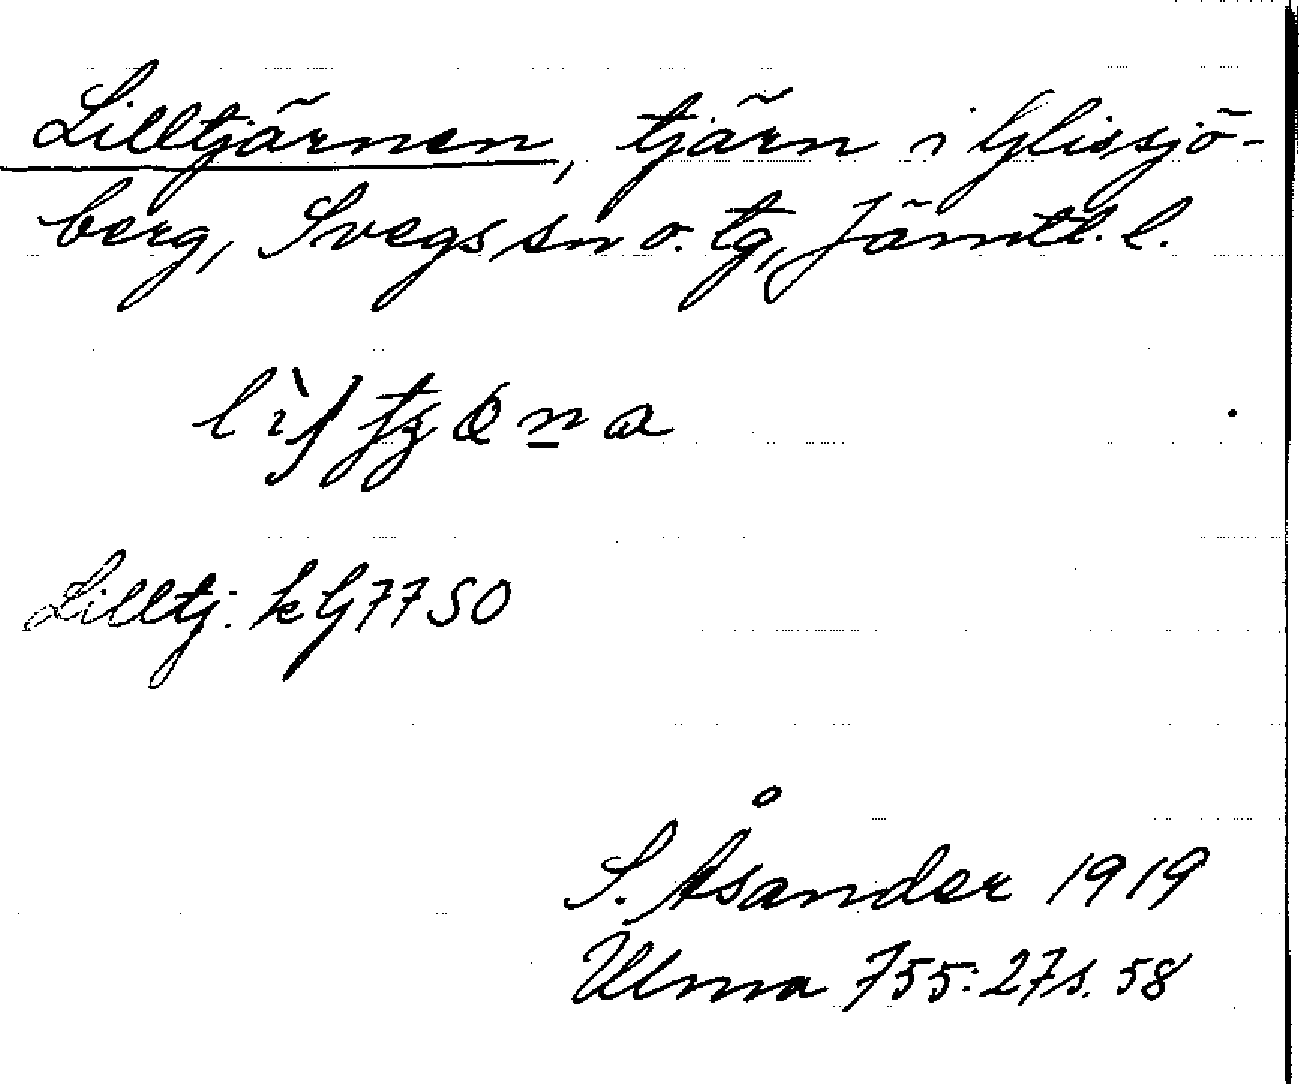 Lilltjärnen, tjärn i Glissjö-
berg, Svegs sn o. tg, Jämtl. l.
Lilltj. kG7750
S. Åsander 1919
Ulma 755:27 s. 58